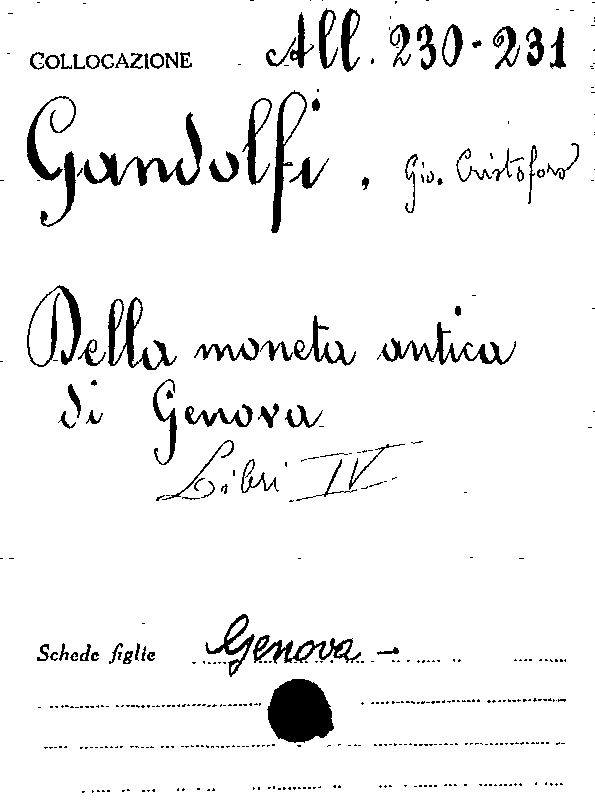 COLLOCAZIONE All. 230-231
Gandolfi, Gio. Cristoforo
Della moneta antica
di Genova
Libri IV
Schede figlie Genova -